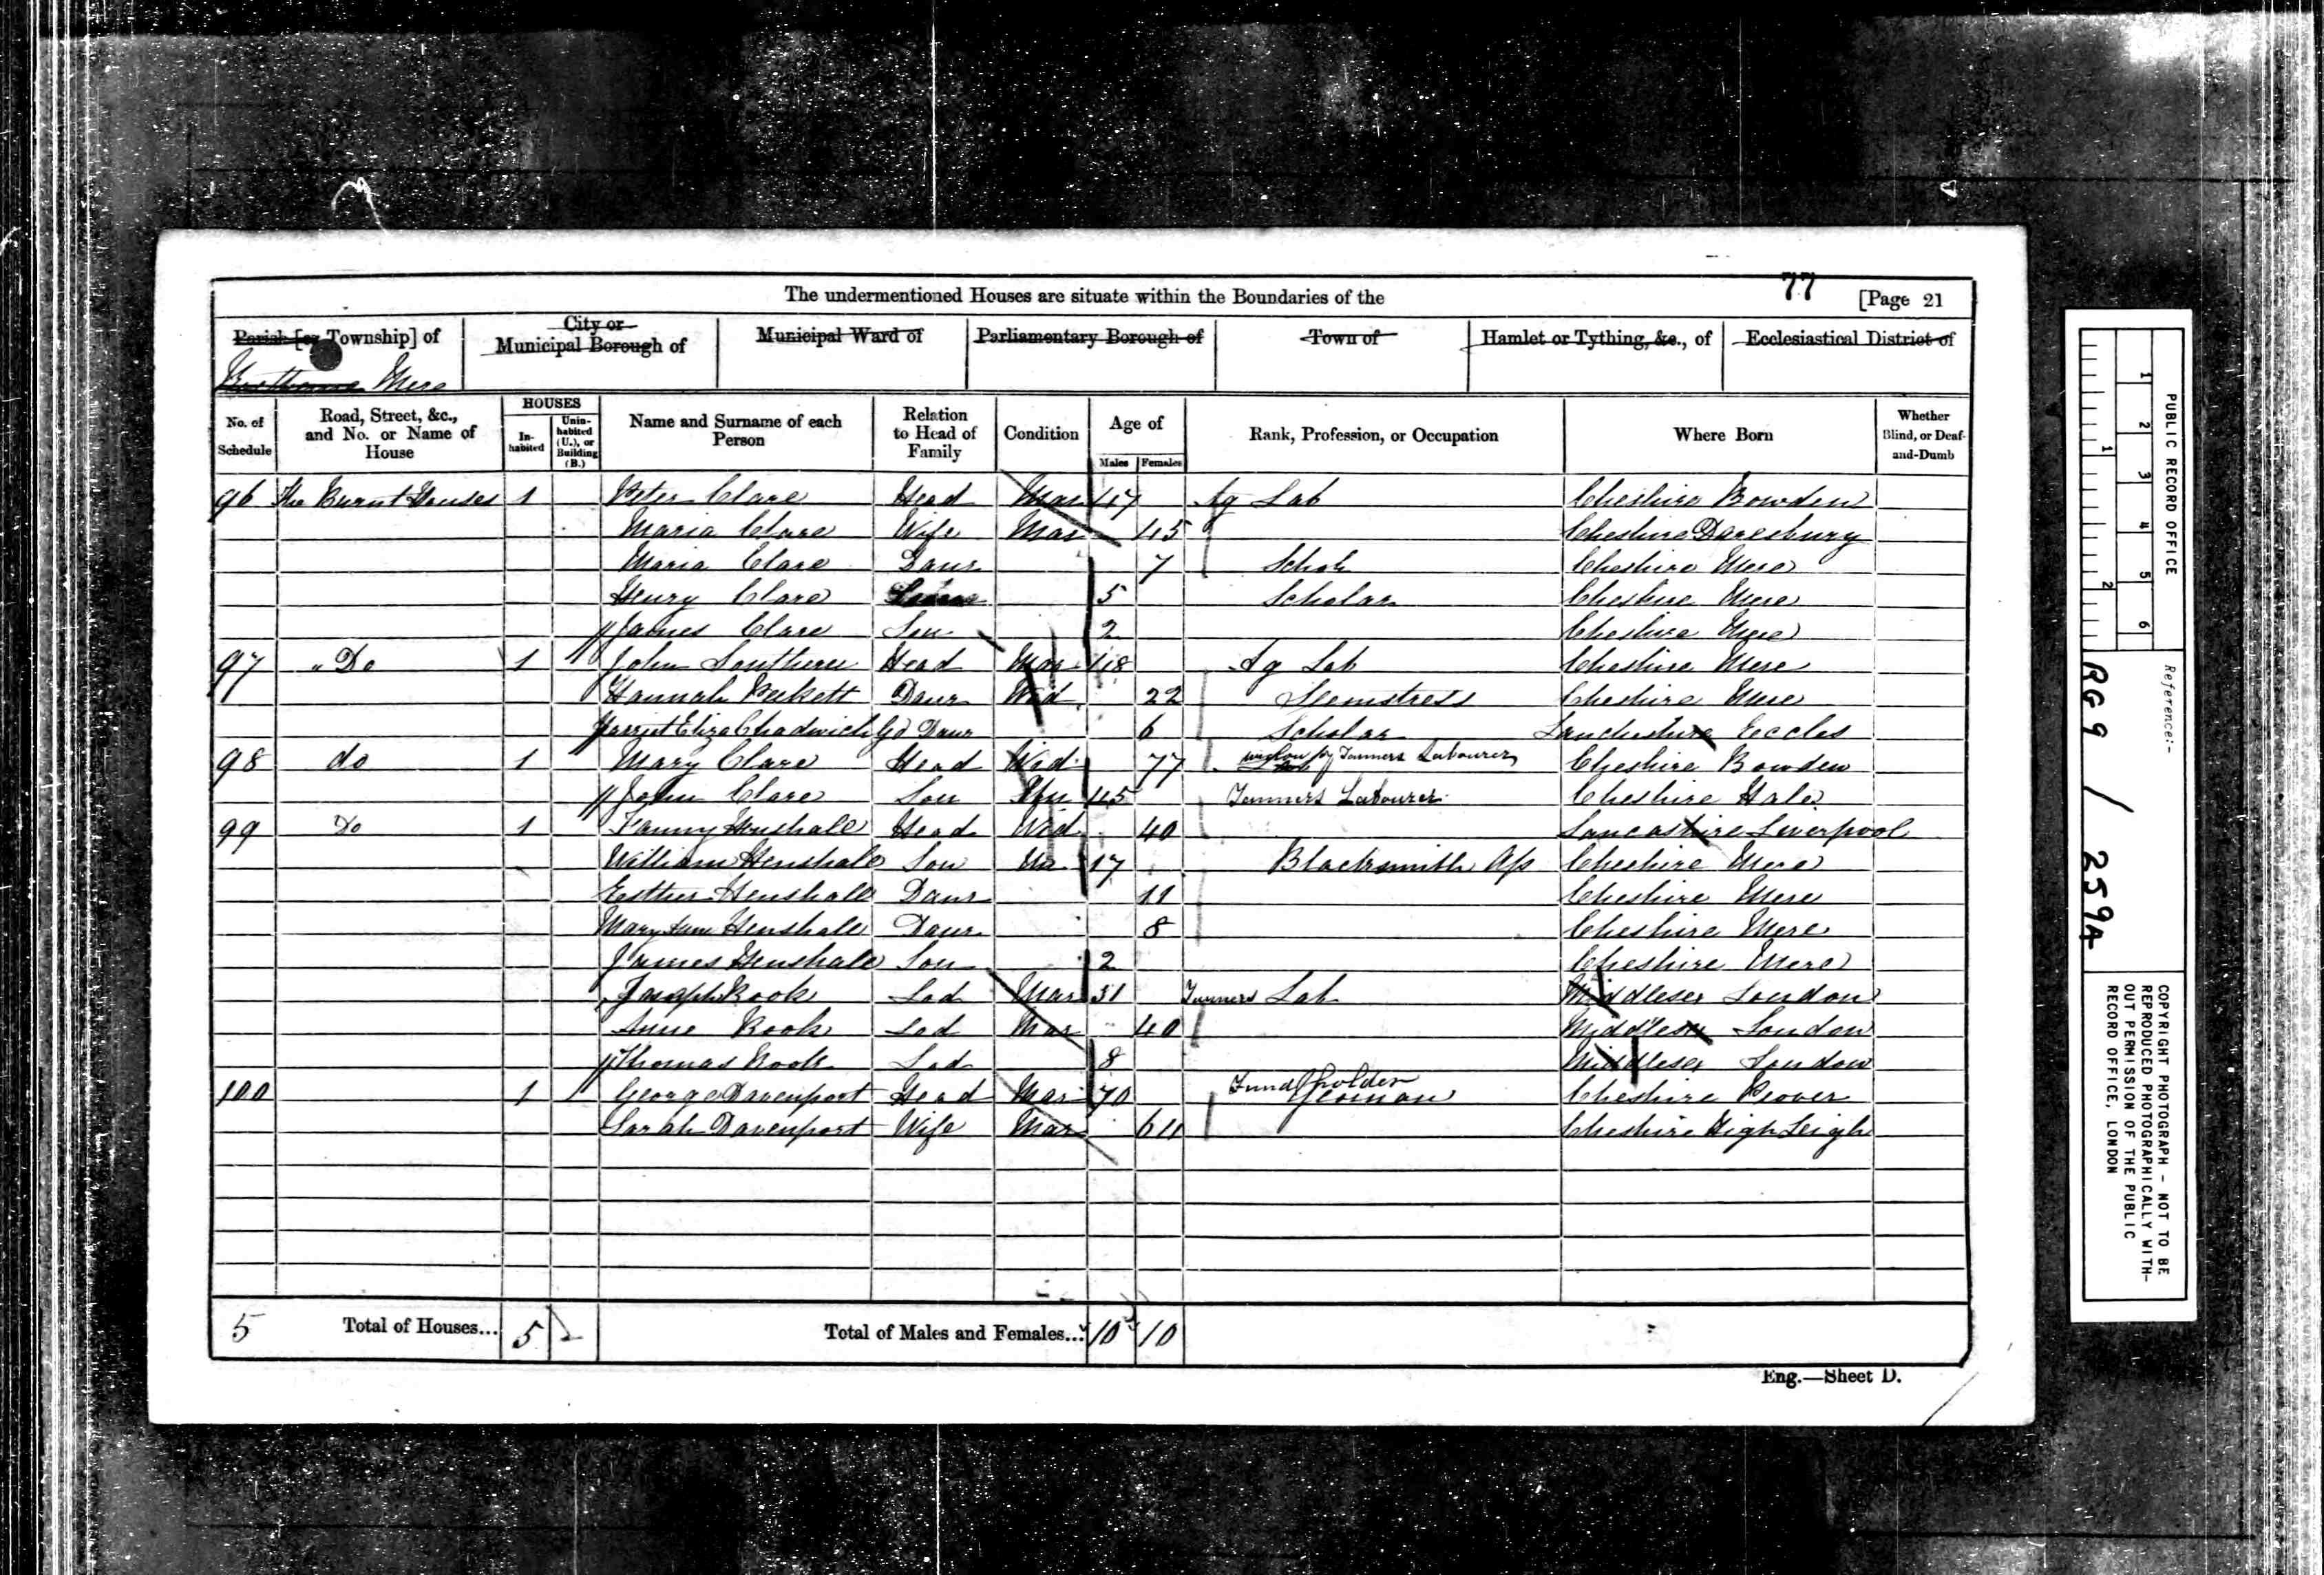 The undermentioned Houses are situate within the Boundaries of the
77
[Page 21
Parish [or Township] of
City or Municipal Borough of
Municipal Ward of
Parliamentary Borough of
Town of
Hamlet or Tything, &c., of
Ecclesiastical District of
Mere
No. of Schedule
Road, Street, &c., and No. or Name of House
HOUSES
In-habited
Unin-habited (U.), or Building (B.)
Name and Surname of each Person
Relation to Head of Family
Condition
Age of
Males
Females
Rank, Profession, or Occupation
Where Born
Whether Blind, or Deaf-and-Dumb
96 The Burnt Houses 1 Peter Clare Head Mar 47 Ag Lab Cheshire Bowden
Maria Clare Wife Mar 45 Cheshire Daresbury
Maria Clare Daur 7 Schol Cheshire Mere
Henry Clare 5 Scholar Cheshire Mere
James Clare Son 2 Cheshire Mere
97 " Do 1 John Southern Head Mar 48 Ag Lab Cheshire Mere
Hannah Peckett Daur Wid 22 Semstress Cheshire Mere
Harriet Eliza Chadwick Gd Daur 6 Scholar Lancheshire Eccles
98 do 1 Mary Clare Head Wid 77 widow of Tanners Labourer Cheshire Bowden
John Clare Son Un 45 Tanners Labourer Cheshire Hale
99 Do 1 Fanny Henshall Head Wid 40 Lancashire Liverpool
William Henshall Son Un 17 Blacksmith Ap Cheshire Mere
Esther Henshall Daur 11 Cheshire Mere
Mary Ann Henshall Daur 8 Cheshire Mere
James Henshall Son 2 Cheshire Mere
Joseph Rook Lod Mar 31 Tanners Lab Middlesex London
Anne Rook Lod Mar 40 Middlesex London
Thomas Rook Lod 8 Middlesex London
100 1 George Davenport Head Mar 70 Fundholder Yeoman Cheshire Peover
Sarah Davenport Wife Mar 64 Cheshire High Leigh
5 Total of Houses... 5
Total of Males and Females... 10 10
Eng.—Sheet D.
PUBLIC RECORD OFFICE
1 2 3 4 5 6
1 2
Reference:-
RG 9 / 2594
COPYRIGHT PHOTOGRAPH - NOT TO BE
REPRODUCED PHOTOGRAPHICALLY WITH-
OUT PERMISSION OF THE PUBLIC
RECORD OFFICE, LONDON